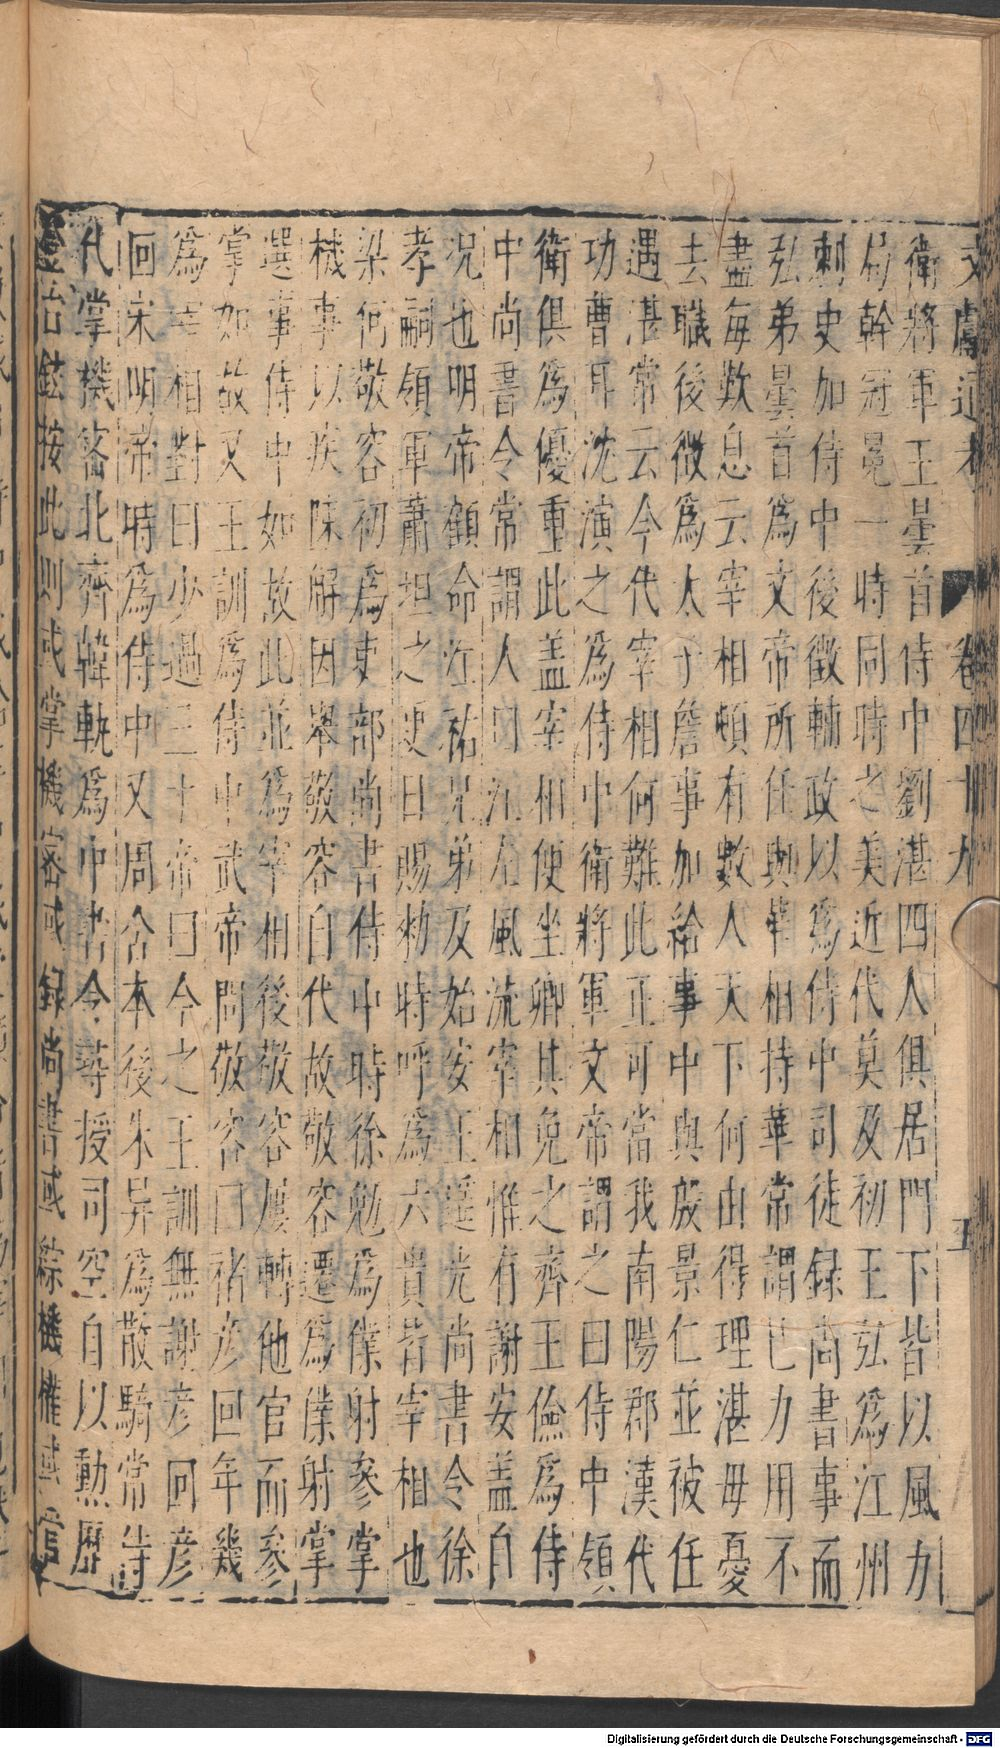 文獻通考 卷四十九 五
衛將軍王曇首侍中劉湛四人俱居門下皆以風力
局幹冠冕一時同時之美近代莫及初王弘為江州
刺史加侍中後徵輔政以為侍中司徒録尚書事而
弘弟曇首為文帝所任與華相持華常謂巳力用不
盡每歎息云宰相頓有數人天下何由得理湛毋憂
去職後徵為太子詹事加給事中與殷景仁並被任
遇湛常云今代宰相何難此正可當我南陽郡漢代
功曹耳沈演之為侍中衛將軍文帝謂之曰侍中領
衛俱為優重此盖宰相便坐卿其免之齊王儉為侍
中尚書令常謂人曰江左風流宰相惟有謝安盖自
况也明帝顧命江祐兄弟及始安王遥光尚書令徐
孝嗣領軍蕭坦之更日賜勑時呼為六貴皆宰相也
梁何敬容初為吏部尚書侍中時徐勉為僕射參掌
機事以疾陳解因舉敬容自代故敬容遷為僕射掌
選事侍中如故此並為宰相後敬容屢轉他官而參
掌如故又王訓為侍中武帝問敬容曰褚彦回年幾
為宰相對曰少過三十帝曰今之王訓無謝彦回彦
回宋明帝時為侍中又周舍本後朱异為散騎常侍
代掌機密北齊韓軌為中書令尋授司空自以勳歷
登台鉉按此則或掌機密或録尚書或綜機權或官
Digitalisierung gefördert durch die Deutsche Forschungsgemeinschaft - DFG